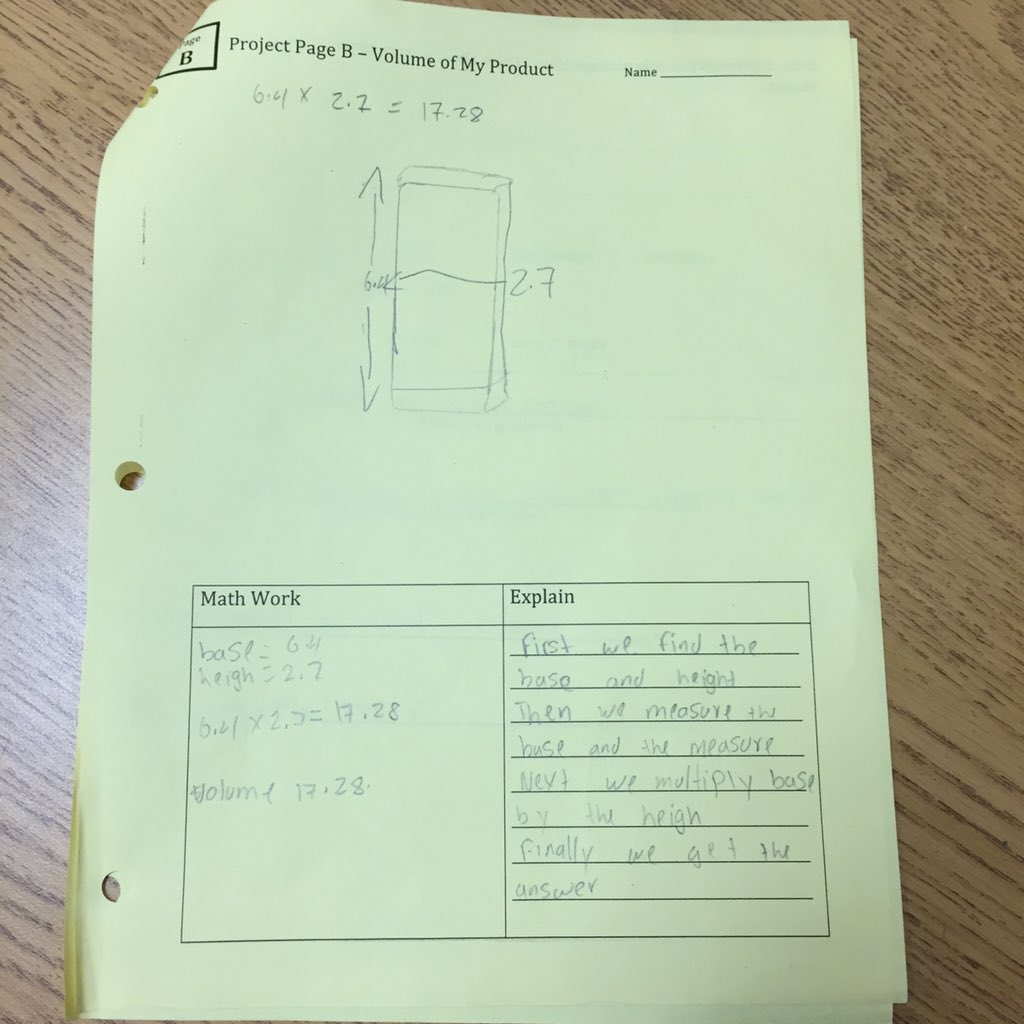 Page
B
Project Page B – Volume of My Product
Name
6.4 x 2.7 = 17.28
6.4
2.7
Math Work
Explain
base = 6.4
heigh = 2.7
6.4 x 2.7 = 17.28
Volume 17.28.
First we find the
base and height
Then we measure the
base and the measure
Next we multiply base
by the heigh
Finally we get the
answer